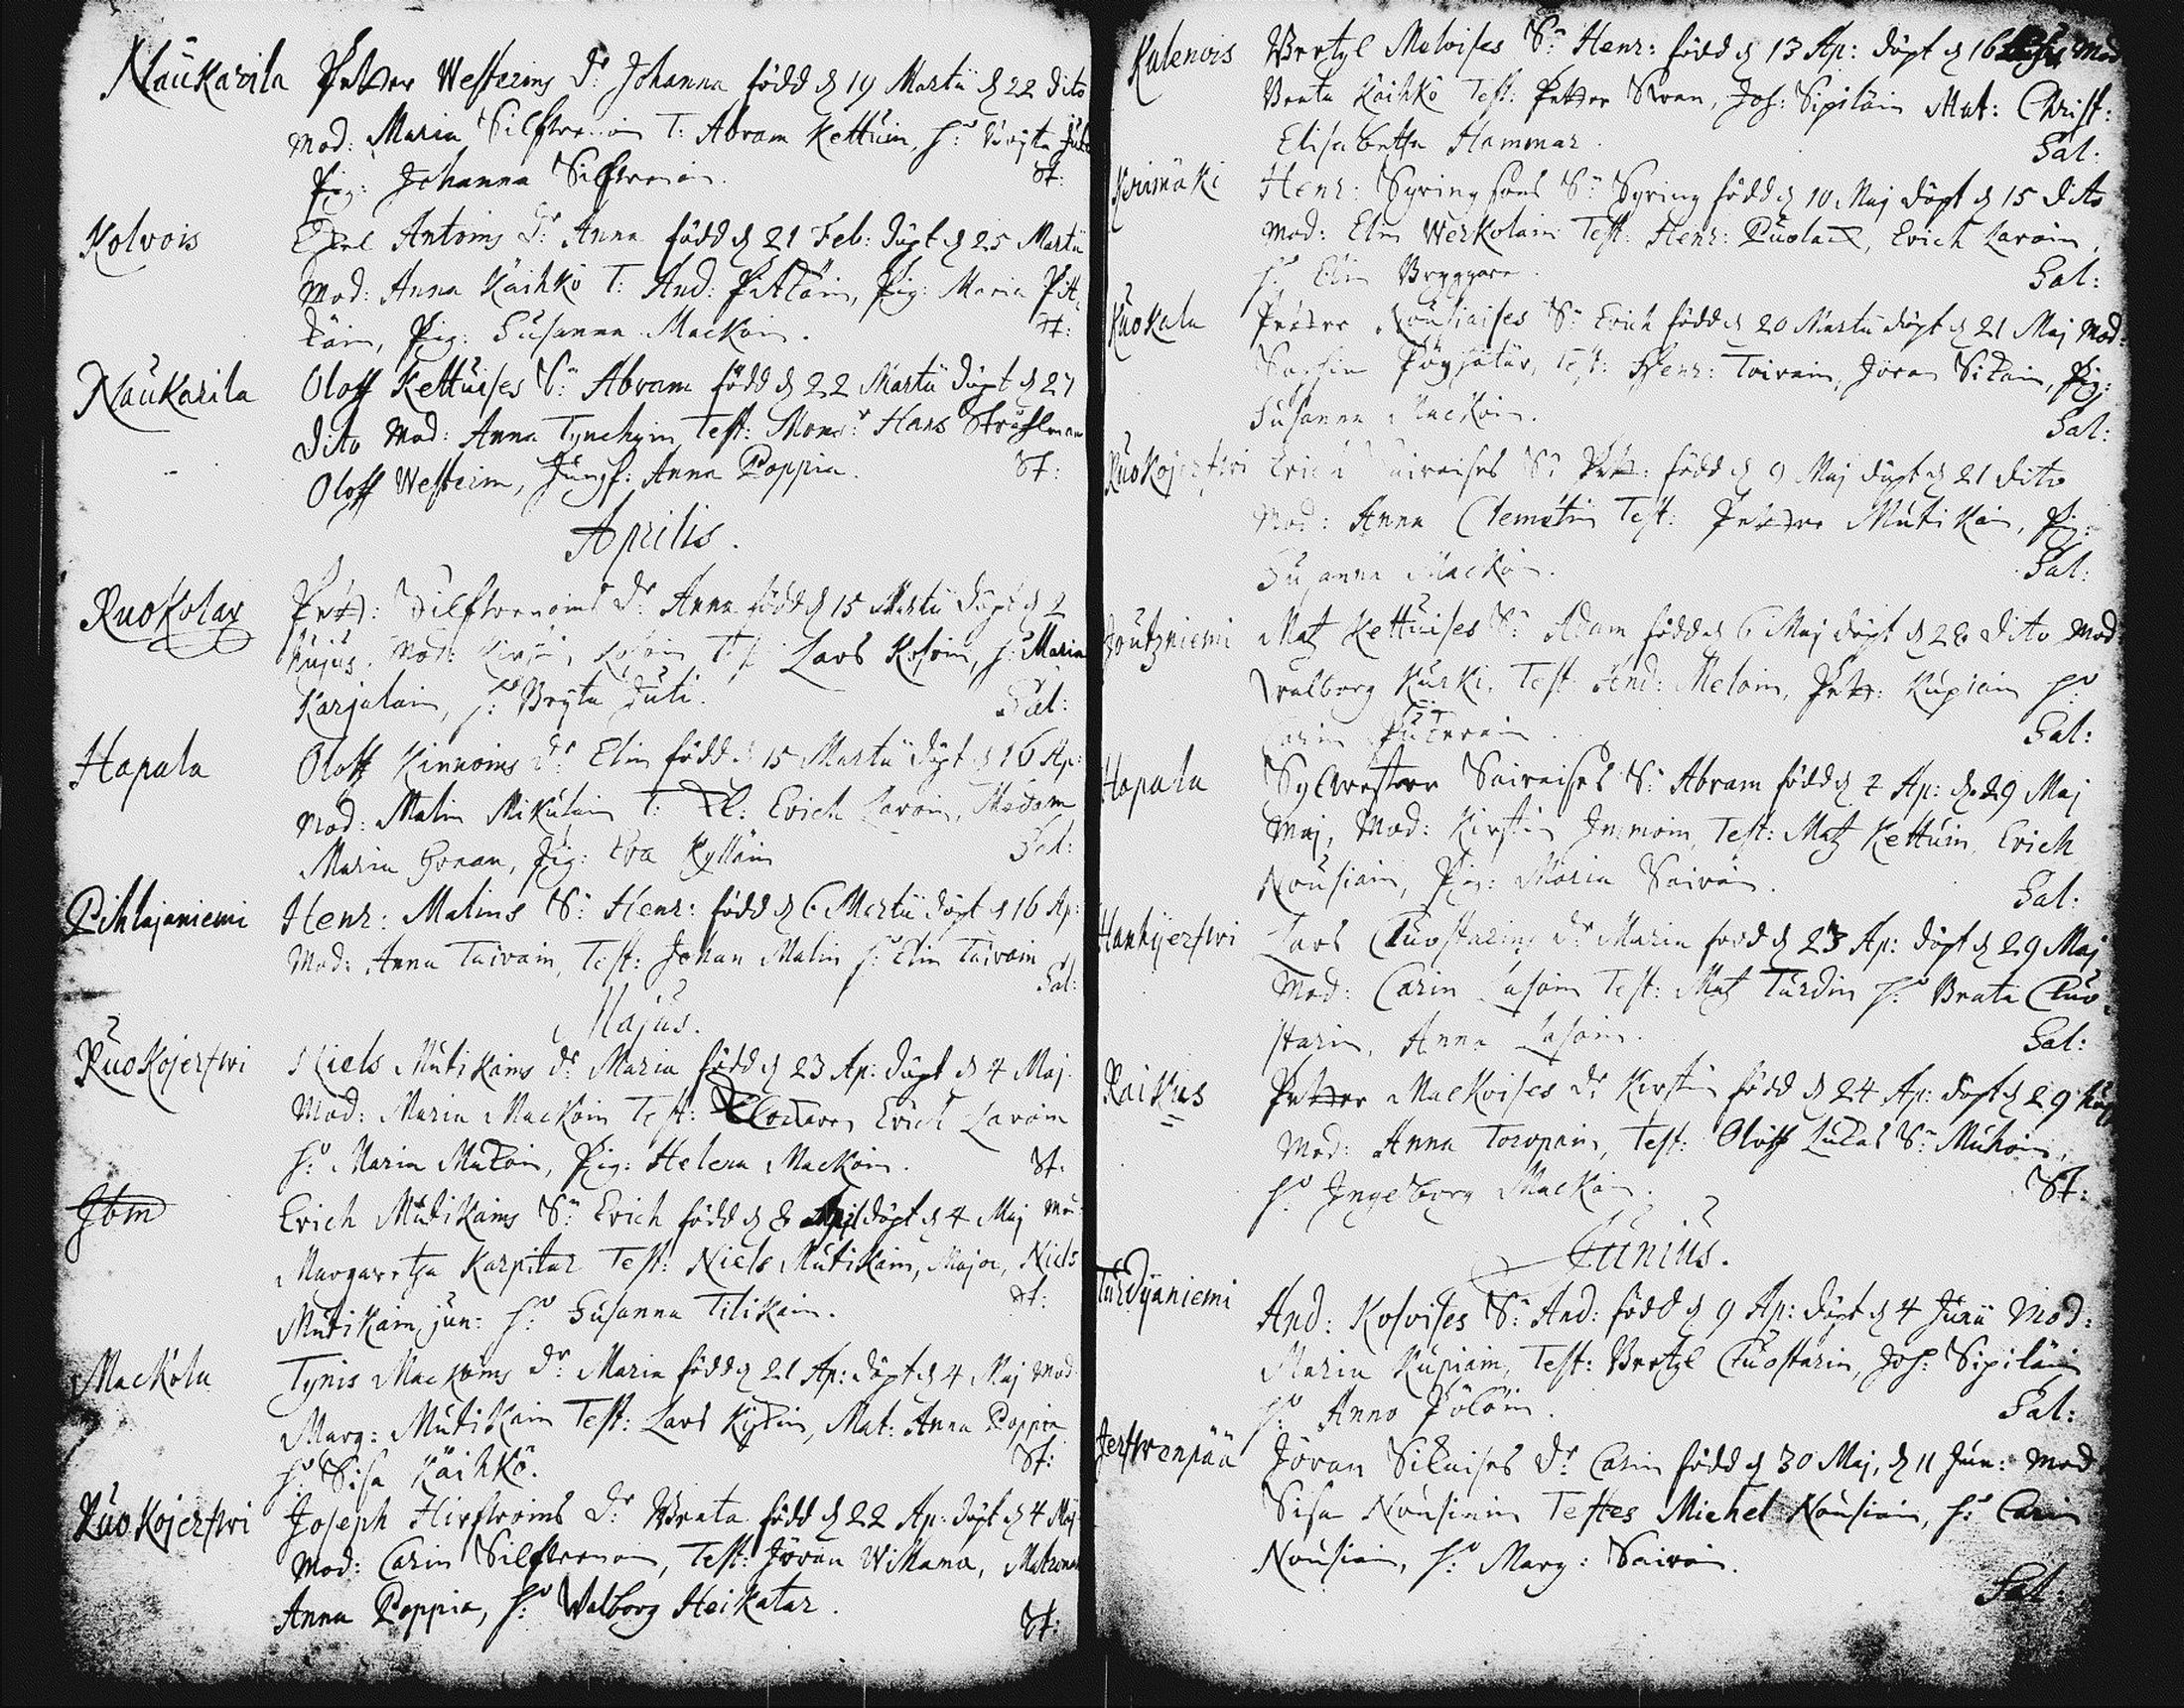 Naukarila Petter Westerins Dr Johanna född d 19 Martii d 22 dito
Mod: Maria Silfwenoin T: Abram Kettuin, h: Brijta Juti
Pig: Johanna Silfwenoin. St:
Kolvois Antoins Dr: Anna född d 21 Feb: döpt d 25 Martii
Mod: Anna Käihkö T: And: Pitkäin, Pig: Maria Pitt
käin, Pig: Susanna Mackoin. St:
Naukarila Oloff Kettuises S: Abram född d 22 Martii döpt d 27
dito Mod: Anna Tynchyin, Test: Monsr: Hans Stråhlman
Oloff Westerin, Jungf: Anna Poppia. St:
Aprilis.
Ruokolax Pett: Silfwenoins Dr Anna född d 15 Martii döpt d 2
hujus. Mod: Kirstin Test Lars Kosoin, h: Maria
Karjalain, h: Brijta Juti. Sal:
Hapala Oloff Kinnoins Dr: Elin född d 15 Martii döpt d 16 Ap:
Mod: Malin Mikulain T: Kl: Erich Laroin, Madam
Maria Goman, Pig: Eva Kylläin Sal:
Pihlajaniemi Henr: Malins S: Henr: född d 6 Martii döpt d 16 Ap:
Mod: Anna Taivain, Test: Johan Malin h: Elin Taivain
Sal:
Majus.
Ruokojerfwi Niels Mutikains Dr Maria född d 23 Ap: döpt d 4 Maj.
Mod: Maria Mackoin Test: Klockaren Erich Laroin
h: Maria Matoin, Pig: Helena Mackoin. St:
Ibm Erich Mutikains S: Erich född d 8 April döpt d 4 Maj Mo:
Margaretha Karpitar Test: Niels Mutikain, Major, Niels
Mutikain jun: h: Susanna Tilikain. St:
Mackola Tynis Mackoins Dr: Maria född d 21 Ap: döpt d 4 Maj Mod
Marg: Mutikain Test: Lars Mat: Anna Poppia
h: Sisa Käihkö. St:
Ruokojerfwi Joseph Hirfwoins Dr: Breata född d 22 Ap: döpt d 4 Maj
Mod: Carin Silfwenoin, Test: Jöran Wikman, Matrona
Anna Poppia, h: Walborg Heikatar. St:
Kulenois Bertyl Malvises S: Henr: född d 13 Ap: döpt d 16 Mod
Beata Käihkö Test: Petter Swan, Joh: Sipiläin Mat: Christ:
Elisabetha Hammar. Sal:
Kerimäki Henr: Syringsons S: Syring född d 10 Maj döpt d 15 dito
Mod: Elin Werkolain Test: Henr: Puolak, Erich Laroin,
h: Elin Bryggare. Sal:
Kuokala Petter Nousiaises S: Erich född d 20 Martii döpt d 21 Maj Mod:
Pöyhätär, Test: Henr: Toivain, Jöran Sikain, Pig:
Susanna Mackoin. Sal:
Ruokojerfwi Erich S: Pett: född d 9 Maj döpt d 21 dito
Mod: Anna Clemetin Test: Petter Mutikain, Pig:
Susanna Mackoin. Sal:
Joutzniemi Matz Kettuises S: Adam född d 6 Maj döpt d 28 dito Mod
Walborg Kurki, Test: And: Meloin, Pett: Kupiain h:
Carin Sal:
Hapala Sylwester Sairaises S: Abram född d 2 Ap: d. 29 Maj
Maj, Mod: Kirstin Immoin, Test: Matz Kettuin, Erich
Nousiain, Pig: Maria Sairain. Sal:
Hankijerfwi Lars Cuostarins Dr Maria född d 23 Ap: döpt d 29 Maj
Mod: Carin Lasoin Test: Matz Turdin h: Beata Cuo
starin, Anna Lasoin. Sal:
Raikus Petter Mackoises Dr Kirstin född d 24 Ap: döpt d 29 huj
Mod: Anna Toropain, Test: Oloff Lukas S: Muhoin,
h: Ingeborg Mackoin. St:
Junius.
Turdijaniemi And: Kosoises S: And: född d 9 Ap: döpt d 4 Junii Mod:
Maria Kupiain, Test: Bertyl Cuostarin, Joh: Sipiläin
h: Anna Pöläin. Sal:
Jerfwenpää Jöran Sikaises Dr Carin född d 30 Maj, d 11 Jun: Mod
Sisa Nousiain Testes Michel Nousiain, h: Carin
Nousiain, h: Marg: Sairain.
Sal: